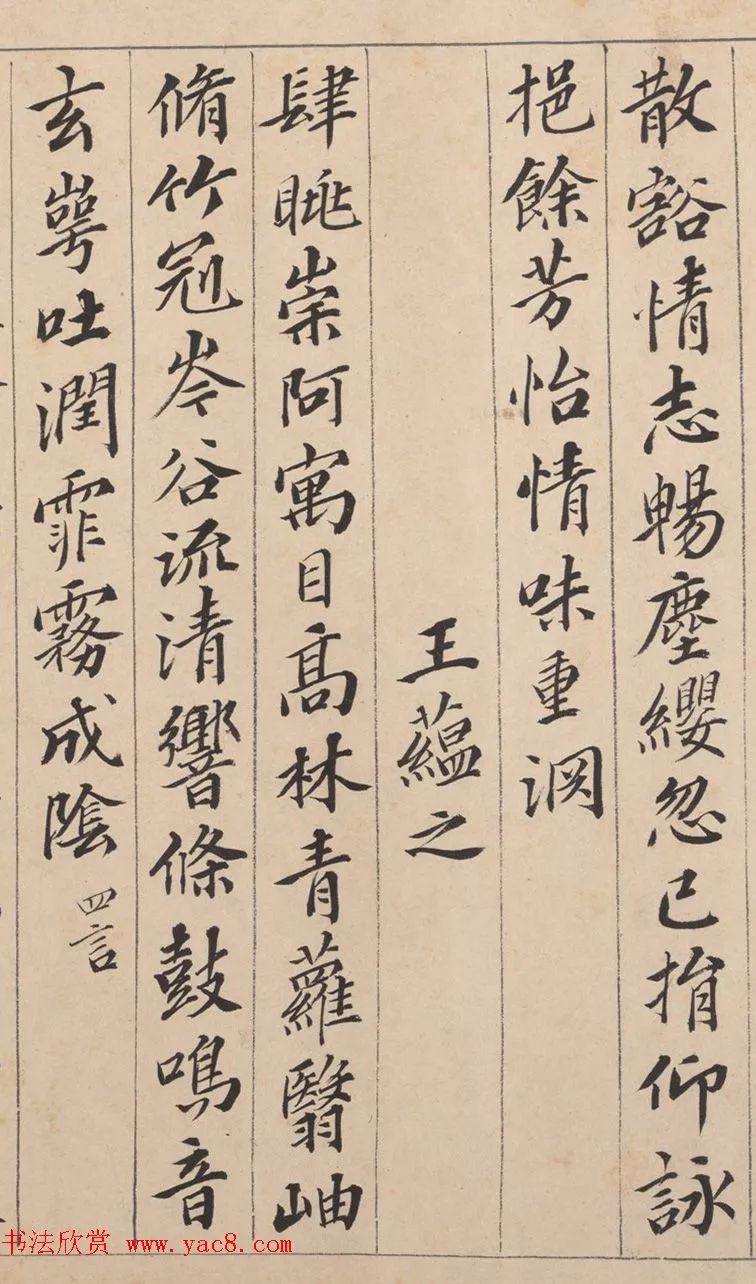 散豁情志暢塵纓忽已捐仰詠
挹餘芳怡情味重渊
王蘊之
肆眺崇阿寓目高林青蘿翳岫
脩竹冠岑谷流清響條鼓鳴音
玄崿吐潤霏霧成陰 四言
书法欣赏 www.yac8.com